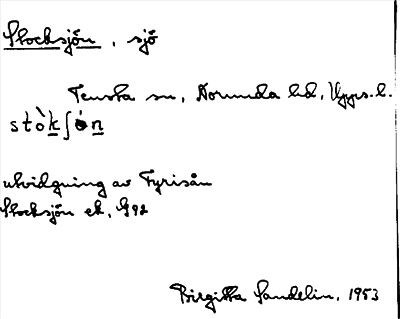 Stocksjön, sjö
Tensta sn, Norunda hd, Upps. l.
stòkʃón
utvidgning av Fyrisån
Stocksjön ek, G92
Birgitta Sandelin, 1953